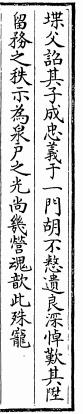 堞父詔其子成忠義于一門胡不憗遺良深悼歎其陞
留務之秩示為泉戸之光尚幾營魂歆此殊寵